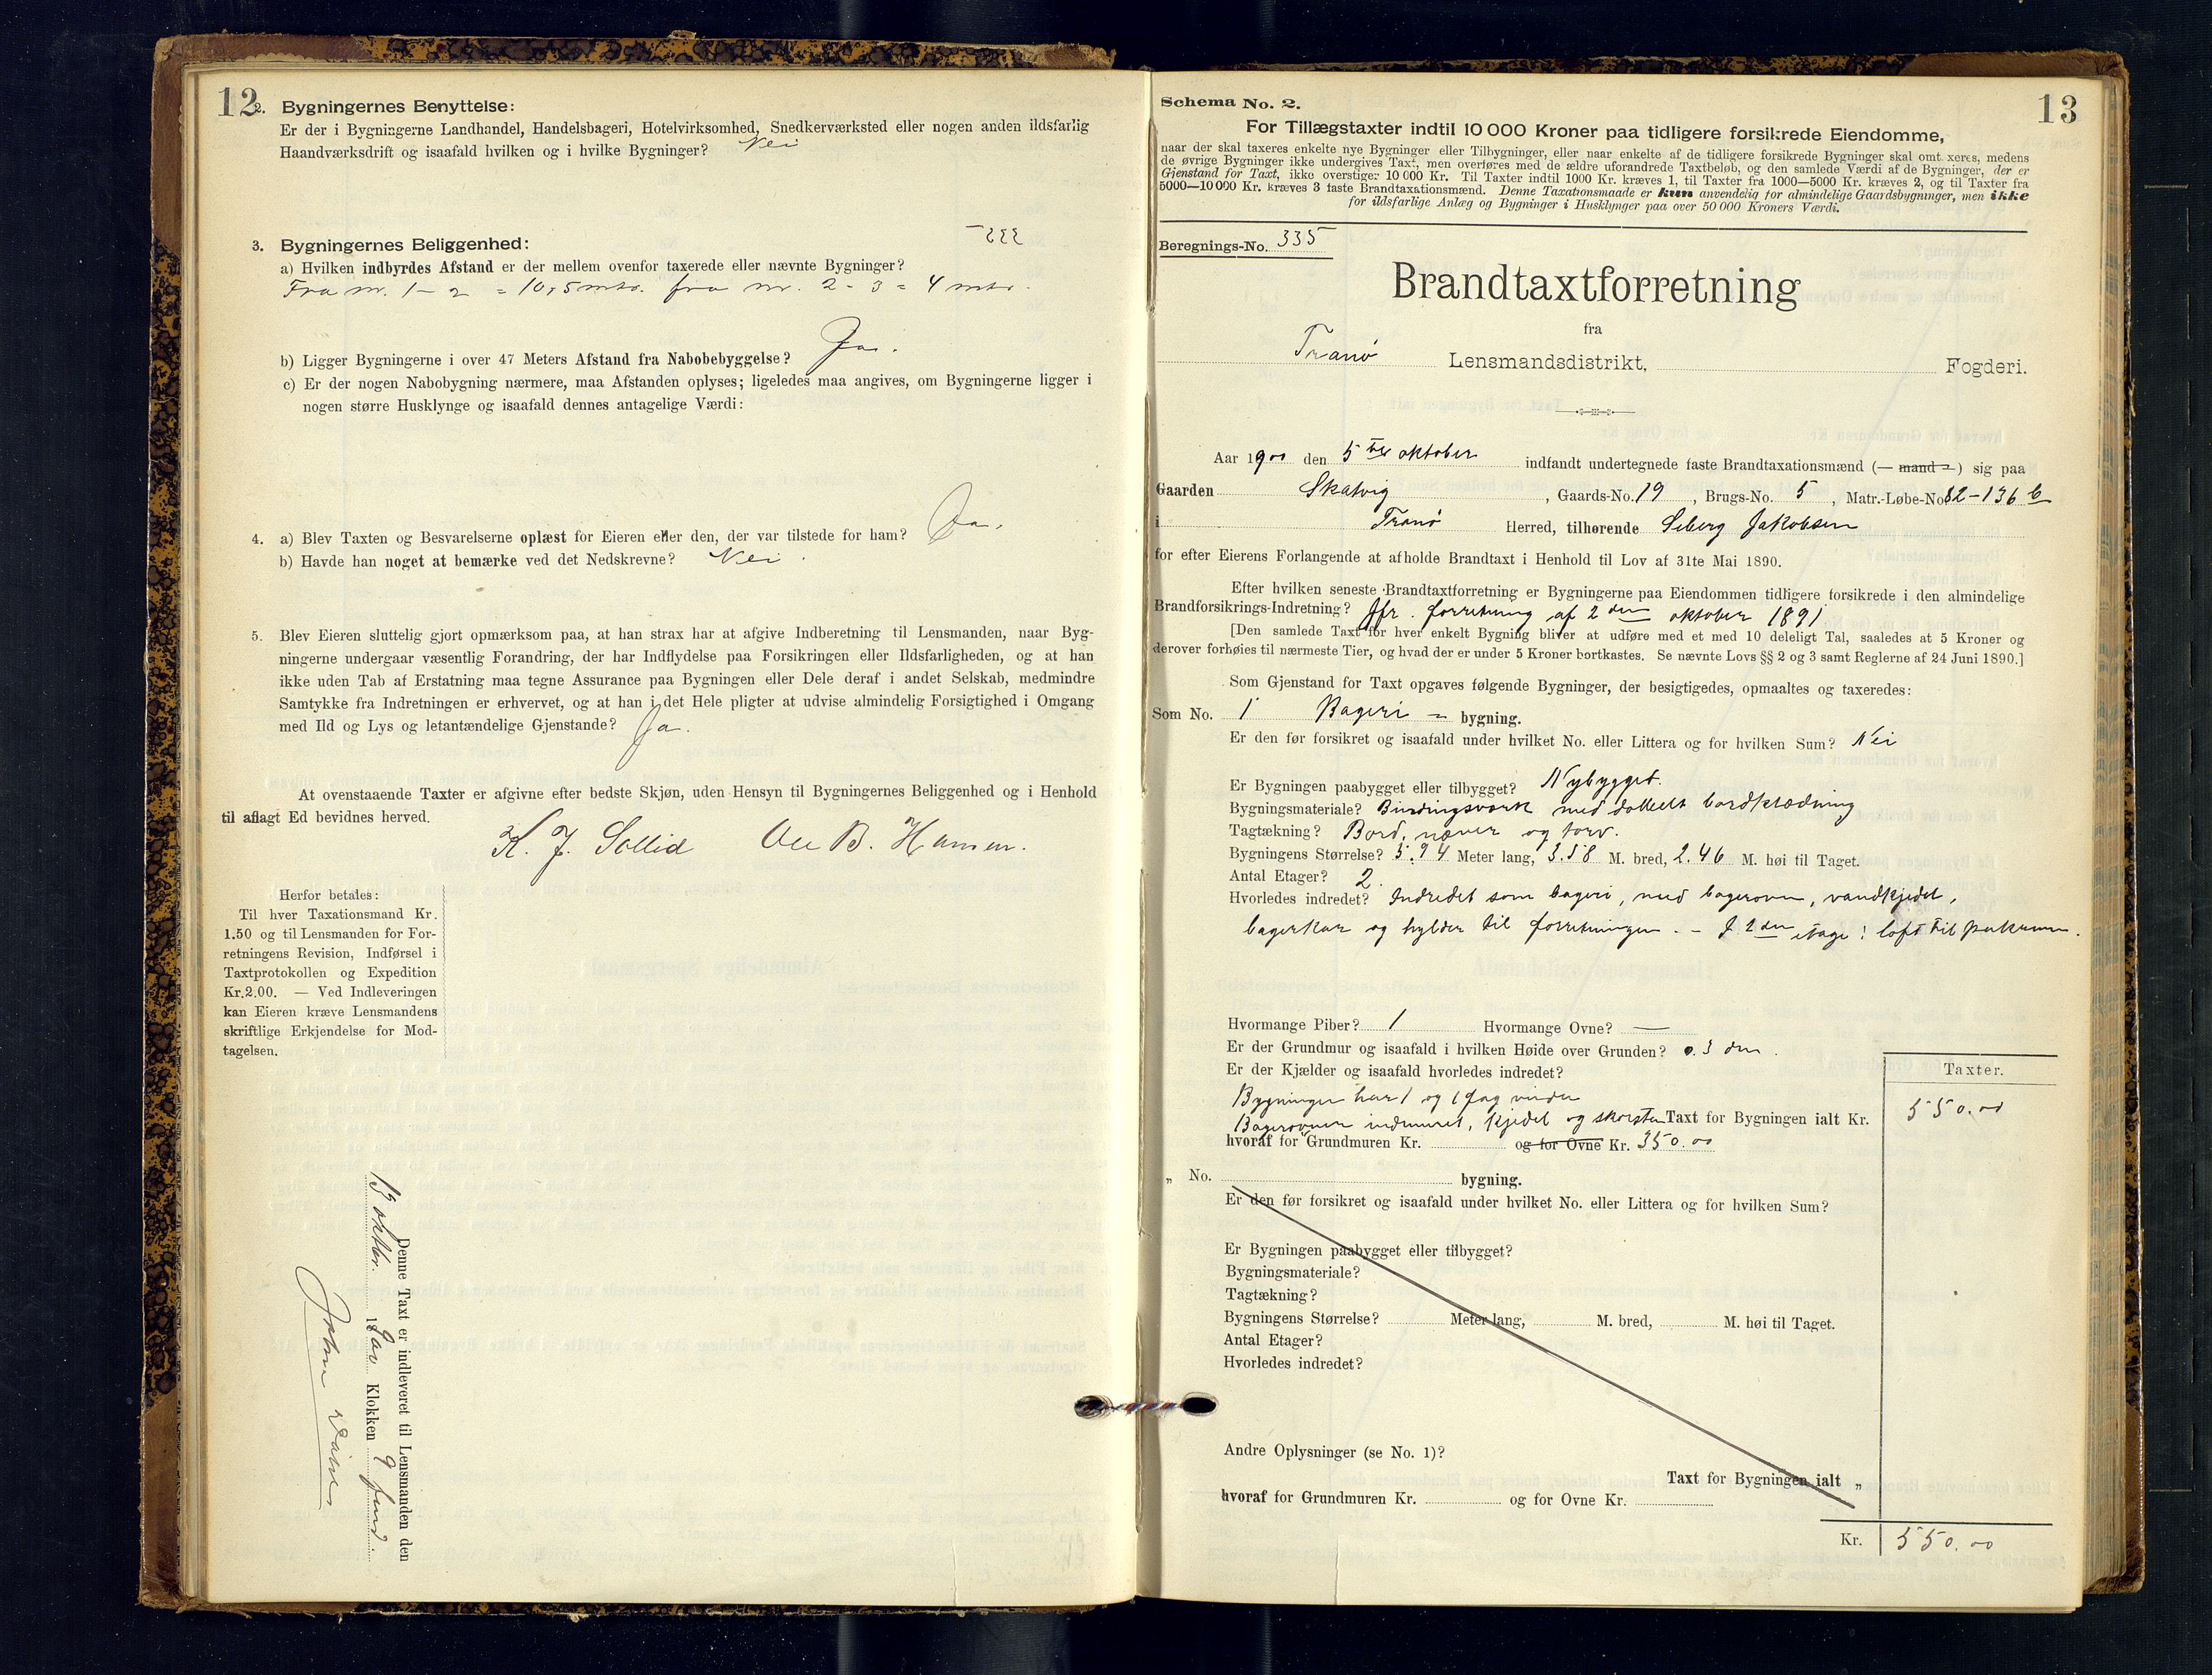 12
2. Bygningernes Benyttelse:
Er der i Bygningerne Landhandel, Handelsbageri, Hotelvirksomhed, Snedkerværksted eller nogen anden ildsfarlig
Haandværksdrift og isaafald hvilken og i hvilke Bygninger? Nei
3. Bygningernes Beliggenhed:
a) Hvilken indbyrdes Afstand er der mellem ovenfor taxerede eller nævnte Bygninger?
Fra nr. 1 - 2 = 10,5 mtr. fra nr. 2 - 3 = 4 mtr.
b) Ligger Bygningerne i over 47 Meters Afstand fra Nabobebyggelse? Ja.
c) Er der nogen Nabobygning nærmere, maa Afstanden oplyses; ligeledes maa angives, om Bygningerne ligger i
nogen større Husklynge og isaafald dennes antagelige Værdi:
4. a) Blev Taxten og Besvarelserne oplæst for Eieren eller den, der var tilstede for ham? Ja.
b) Havde han noget at bemærke ved det Nedskrevne? Nei.
5. Blev Eieren sluttelig gjort opmærksom paa, at han strax har at afgive Indberetning til Lensmanden, naar Byg-
ningerne undergaar væsentlig Forandring, der har Indflydelse paa Forsikringen eller Ildsfarligheden, og at han
ikke uden Tab af Erstatning maa tegne Assurance paa Bygningen eller Dele deraf i andet Selskab, medmindre
Samtykke fra Indretningen er erhvervet, og at han i det Hele pligter at udvise almindelig Forsigtighed i Omgang
med Ild og Lys og letantændelige Gjenstande? Ja.
At ovenstaaende Taxter er afgivne efter bedste Skjøn, uden Hensyn til Bygningernes Beliggenhed og i Henhold
til aflagt Ed bevidnes herved.
K. J. Sollid Ole B. Hansen.
Herfor betales:
Til hver Taxationsmand Kr.
1.50 og til Lensmanden for For-
retningens Revision, Indførsel i
Taxtprotokollen og Expedition
Kr. 2.00. — Ved Indleveringen
kan Eieren kræve Lensmandens
skriftlige Erkjendelse for Mod-
tagelsen.
Denne Taxt er indleveret til Lensmanden den
13 oktbr. 1900 Klokken 9 fmd
Johan
13
Schema No. 2.
For Tillægstaxter indtil 10 000 Kroner paa tidligere forsikrede Eiendomme,
naar der skal taxeres enkelte nye Bygninger eller Tilbygninger, eller naar enkelte af de tidligere forsikrede Bygninger skal omtaxeres, medens
de øvrige Bygninger ikke undergives Taxt, men overføres med de ældre uforandrede Taxtbeløb, og den samlede Værdi af de Bygninger, der er
Gjenstand for Taxt, ikke overstiger 10 000 Kr. Til Taxter indtil 1000 Kr. kræves 1, til Taxter fra 1000—5000 Kr. kræves 2, og til Taxter fra
5000—10 000 Kr. kræves 3 faste Brandtaxationsmænd. Denne Taxationsmaade er kun anvendelig for almindelige Gaardsbygninger, men ikke
for ildsfarlige Anlæg og Bygninger i Husklynger paa over 50 000 Kroners Værdi.
Beregnings-No. 335
Brandtaxtforretning
fra
Tranø Lensmandsdistrikt, Fogderi.
Aar 1900 den 5te oktober indfandt undertegnede faste Brandtaxationsmænd (— mand —) sig paa
Gaarden Skatvig, Gaards-No. 19, Brugs-No. 5, Matr.-Løbe-No 82-136 b
i Tranø Herred, tilhørende Seberg Jakobsen
for efter Eierens Forlangende at afholde Brandtaxt i Henhold til Lov af 31te Mai 1890.
Efter hvilken seneste Brandtaxtforretning er Bygningerne paa Eiendommen tidligere forsikrede i den almindelige
Brandforsikrings-Indretning? Jfr. forretning af 2den oktober 1891
[Den samlede Taxt for hver enkelt Bygning bliver at udføre med et med 10 deleligt Tal, saaledes at 5 Kroner og
derover forhøies til nærmeste Tier, og hvad der er under 5 Kroner bortkastes. Se nævnte Lovs §§ 2 og 3 samt Reglerne af 24 Juni 1890.]
Som Gjenstand for Taxt opgaves følgende Bygninger, der besigtigedes, opmaaltes og taxeredes:
Som No. 1 Bageri - bygning.
Er den før forsikret og isaafald under hvilket No. eller Littera og for hvilken Sum? Nei
Er Bygningen paabygget eller tilbygget? Nybygget.
Bygningsmateriale? Bindingsværk med dobbelt bordklædning
Tagtækning? Bord, næver og torv.
Bygningens Størrelse? 5.94 Meter lang, 3.58 M. bred, 2.46 M. høi til Taget.
Antal Etager? 2.
Hvorledes indredet? Indredet som bageri, med bagerovn, vandkjedel,
bagerkar og hylder til forretningen. - I 2den etage: loft til pakrum.
Hvormange Piber? 1 Hvormange Ovne? —
Er der Grundmur og isaafald i hvilken Høide over Grunden? 0.3 dm.
Er der Kjælder og isaafald hvorledes indredet?
Bygningen har 1 og 1 fag vinduer
Bagerovnen indmuret, kjedel og skorsten Taxt for Bygningen ialt Kr.
hvoraf for Grundmuren Kr. og for Ovne Kr. 350.00
Taxter.
550.00
„ No. bygning.
Er den før forsikret og isaafald under hvilket No. eller Littera og for hvilken Sum?
Er Bygningen paabygget eller tilbygget?
Bygningsmateriale?
Tagtækning?
Bygningens Størrelse? Meter lang, M. bred, M. høi til Taget.
Antal Etager?
Hvorledes indredet?
Andre Oplysninger (se No. 1)?
Taxt for Bygningen ialt „
hvoraf for Grundmuren Kr. og for Ovne Kr.
Kr. 550.00